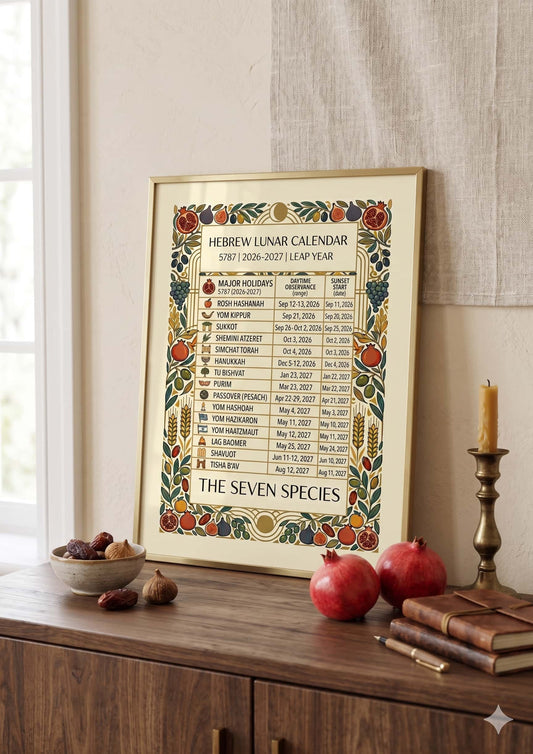 HEBREW LUNAR CALENDAR
5787 | 2026-2027 | LEAP YEAR
MAJOR HOLIDAYS 5787 (2026-2027) DAYTIME OBSERVANCE (range) SUNSET START (date)
ROSH HASHANAH Sep 12-13, 2026 Sep 11, 2026
YOM KIPPUR Sep 21, 2026 Sep 20, 2026
SUKKOT Sep 26-Oct 2, 2026 Sep 25, 2026
SHEMINI ATZERET Oct 3, 2026 Oct 2, 2026
SIMCHAT TORAH Oct 4, 2026 Oct 3, 2026
HANUKKAH Dec 5-12, 2026 Dec 4, 2026
TU BISHVAT Jan 23, 2027 Jan 22, 2027
PURIM Mar 23, 2027 Mar 22, 2027
PASSOVER (PESACH) Apr 22-29, 2027 Apr 21, 2027
YOM HASHOAH May 4, 2027 May 3, 2027
YOM HAZIKARON May 11, 2027 May 10, 2027
YOM HAATZMAUT May 12, 2027 May 11, 2027
LAG BAOMER May 25, 2027 May 24, 2027
SHAVUOT Jun 11-12, 2027 Jun 10, 2027
TISHA B'AV Aug 12, 2027 Aug 11, 2027
THE SEVEN SPECIES